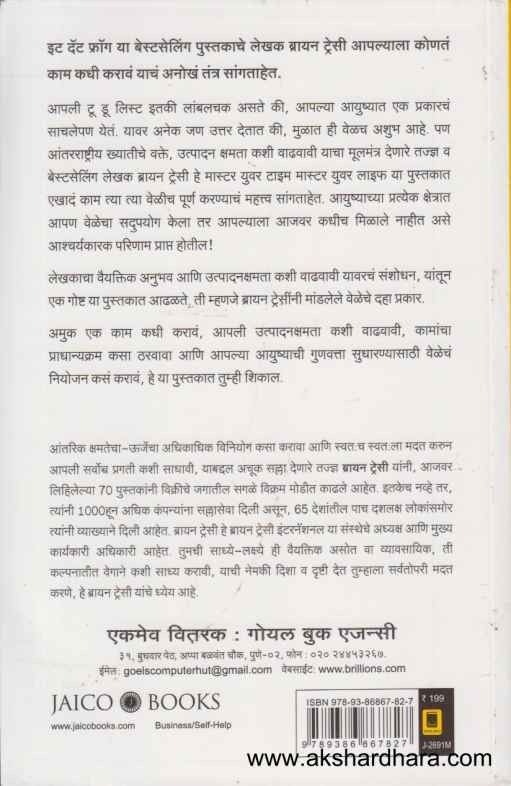 इट दॅट फ्रॉग या बेस्टसेलिंग पुस्तकाचे लेखक ब्रायन ट्रेसी आपल्याला कोणतं
काम कधी करावं याचं अनोखं तंत्र सांगताहेत.
आपली टू डू लिस्ट इतकी लांबलचक असते की, आपल्या आयुष्यात एक प्रकारचं
साचलेपण येतं. यावर अनेक जण उत्तर देतात की, मुळात ही वेळच अशुभ आहे. पण
आंतरराष्ट्रीय ख्यातीचे वक्ते, उत्पादन क्षमता कशी वाढवावी याचा मूलमंत्र देणारे तज्ज्ञ व
बेस्टसेलिंग लेखक ब्रायन ट्रेसी हे मास्टर युवर टाइम मास्टर युवर लाइफ या पुस्तकात
एखादं काम त्या त्या वेळीच पूर्ण करण्याचं महत्त्व सांगताहेत. आयुष्याच्या प्रत्येक क्षेत्रात
आपण वेळेचा सदुपयोग केला तर आपल्याला आजवर कधीच मिळाले नाहीत असे
आश्चर्यकारक परिणाम प्राप्त होतील!
लेखकाचा वैयक्तिक अनुभव आणि उत्पादनक्षमता कशी वाढवावी यावरचं संशोधन, यांतून
एक गोष्ट या पुस्तकात आढळते, ती म्हणजे ब्रायन ट्रेसींनी मांडलेले वेळेचे दहा प्रकार.
अमुक एक काम कधी करावं, आपली उत्पादनक्षमता कशी वाढवावी, कामांचा
प्राधान्यक्रम कसा ठरवावा आणि आपल्या आयुष्याची गुणवत्ता सुधारण्यासाठी वेळेचं
नियोजन कसं करावं, हे या पुस्तकात तुम्ही शिकाल.
आंतरिक क्षमतेचा–ऊर्जेचा अधिकाधिक विनियोग कसा करावा आणि स्वतःच स्वतःला मदत करुन
आपली सर्वोच्च प्रगती कशी साधावी, याबद्दल अचूक सल्ला देणारे तज्ज्ञ ब्रायन ट्रेसी यांनी, आजवर
लिहिलेल्या 70 पुस्तकांनी विक्रीचे जगातील सगळे विक्रम मोडीत काढले आहेत. इतकेच नव्हे तर,
त्यांनी 1000हून अधिक कंपन्यांना सल्लासेवा दिली असून, 65 देशांतील पाच दशलक्ष लोकांसमोर
त्यांनी व्याख्याने दिली आहेत. ब्रायन ट्रेसी हे ब्रायन ट्रेसी इंटरनॅशनल या संस्थेचे अध्यक्ष आणि मुख्य
कार्यकारी अधिकारी आहेत. तुमची साध्ये–लक्ष्ये ही वैयक्तिक असोत वा व्यावसायिक, ती
कल्पनातीत वेगाने कशी साध्य करावी, याची नेमकी दिशा व दृष्टी देत तुम्हाला सर्वतोपरी मदत
करणे, हे ब्रायन ट्रेसी यांचे ध्येय आहे.
एकमेव वितरक : गोयल बुक एजन्सी
३१, बुधवार पेठ, अप्पा बळवंत चौक, पुणे-०२, फोन : ०२० २४४५३२६७.
ईमेल : goelscomputerhut@gmail.com वेबसाईट: www.brillions.com
JAICO BOOKS
www.jaicobooks.com Business/Self-Help
ISBN 978-93-86867-82-7
9 789386 867827
₹ 199
J-2691M
www.akshardhara.com